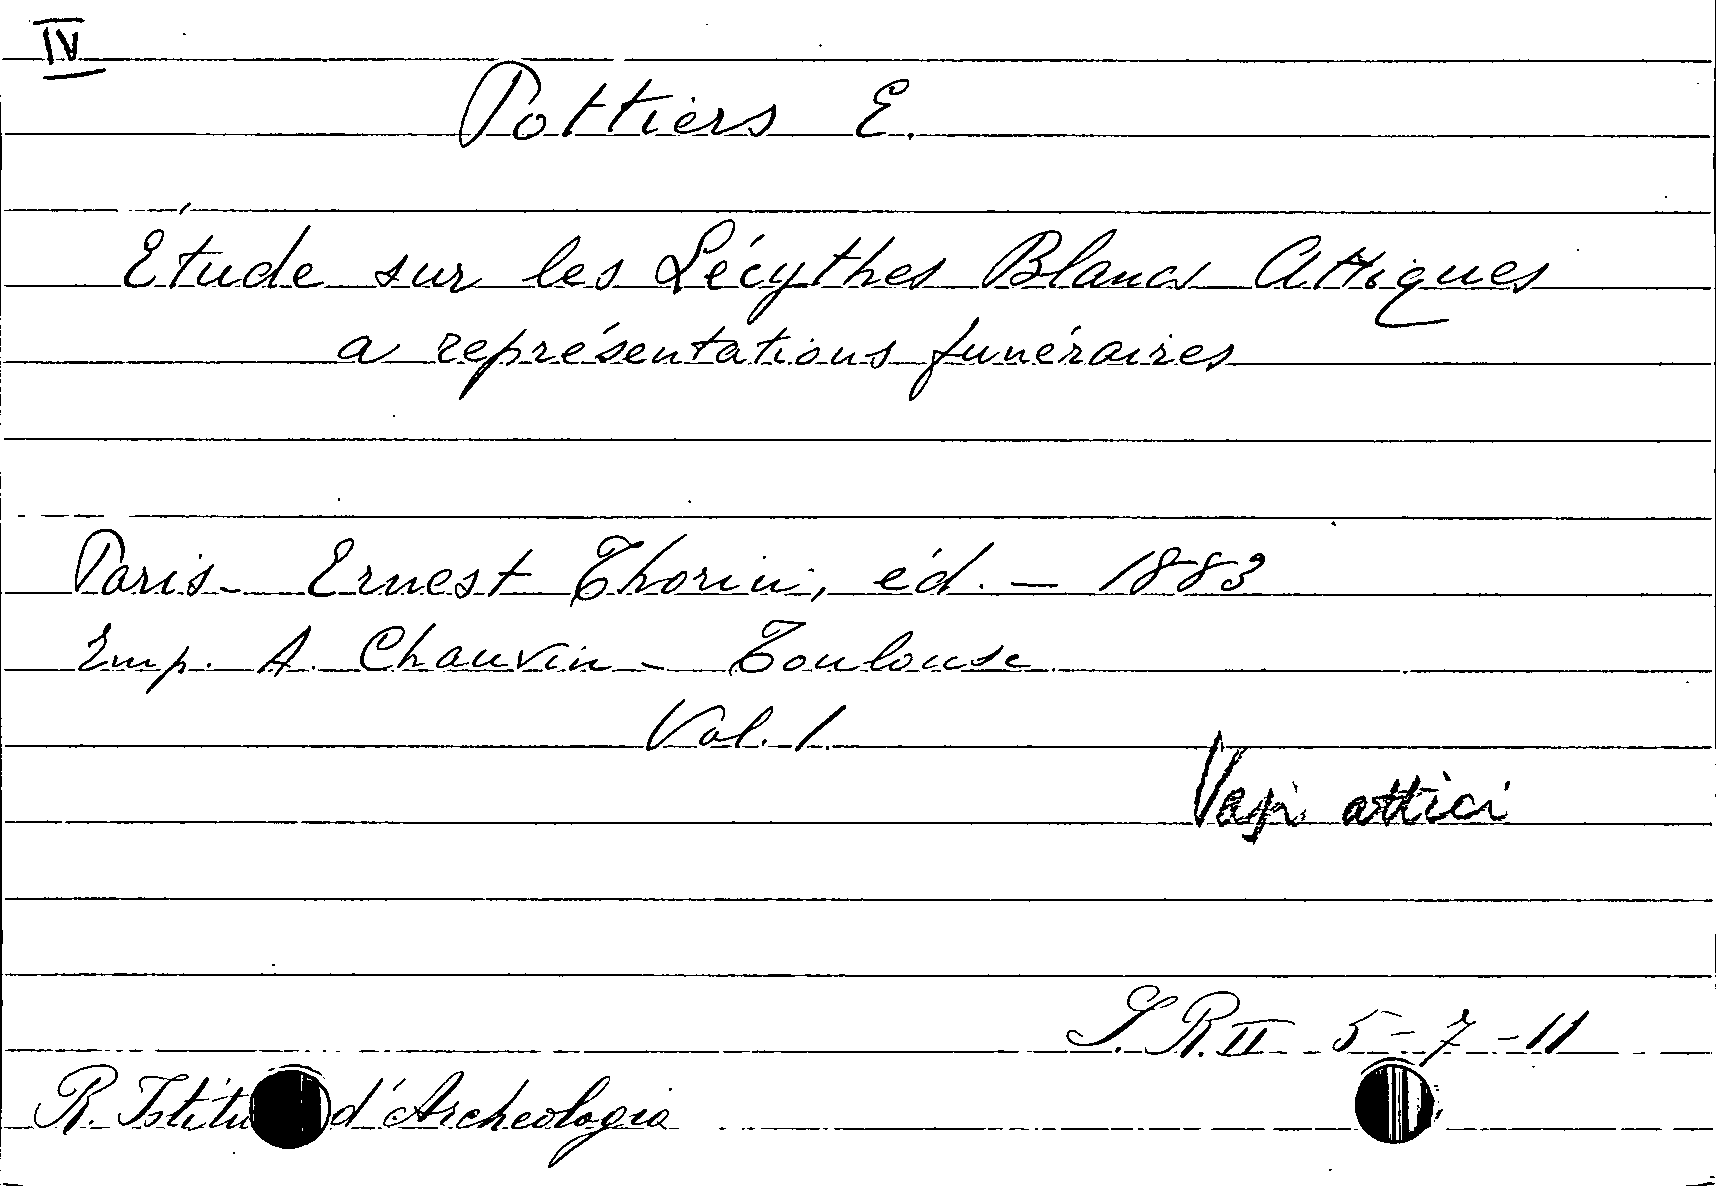 IV
Pottiers E.
Étude sur les Lécythes Blancs Attiques
a représentations funéraires
Paris - Ernest Thorin, éd. - 1883
Imp. A. Chauvin - Toulouse
Vol. 1.
Vasi attici
S. R. II 5-7-11
R. Istitu d'Archeologia